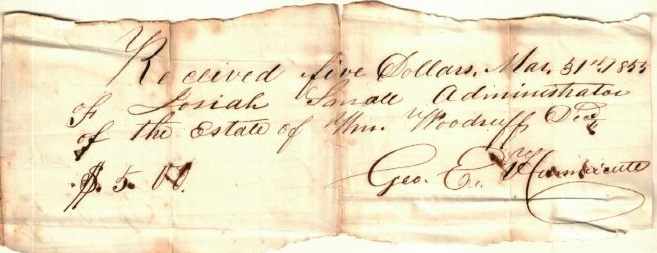 Received five Dollars, Mar. 31st, 1855
of Josiah Small Administrator
of the Estate of Wm. Woodruff Decd
$5.00. Geo. E.